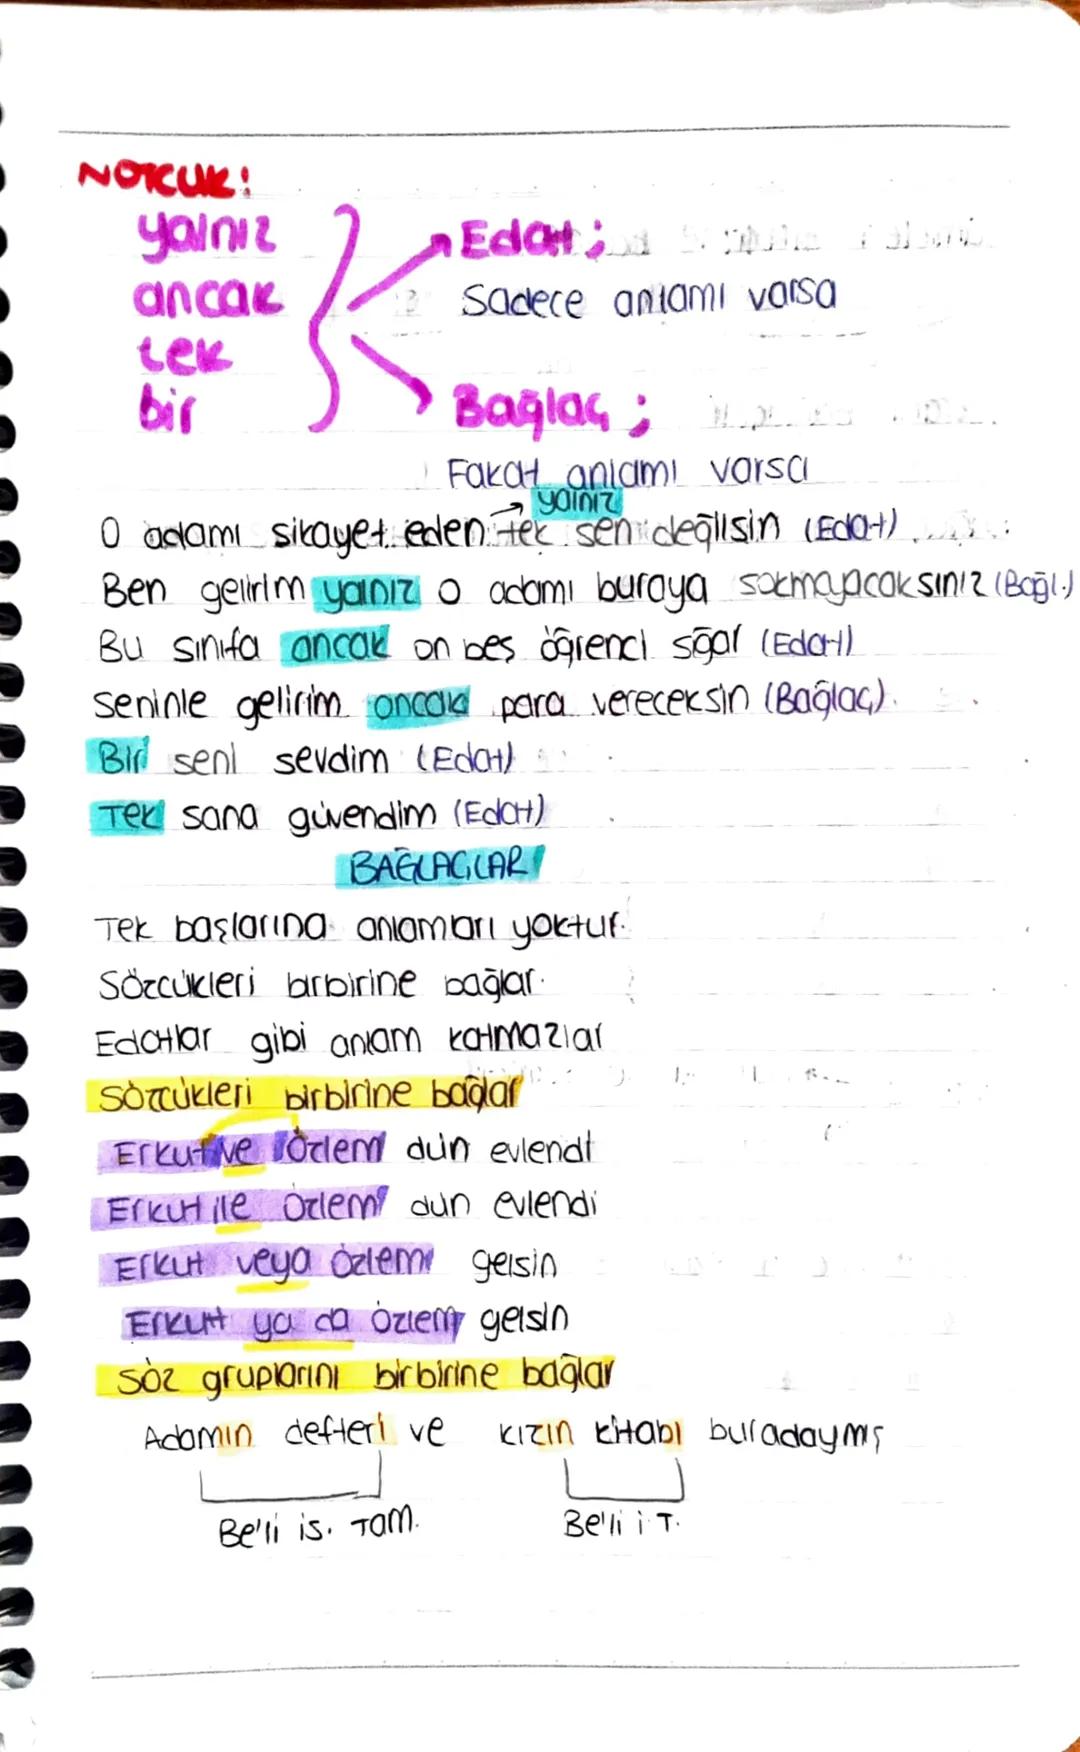 NOTCUK:
yalnız
ancak
tek
bir
Edat;
Sadece anlamı varsa
Bağlaç;
Fakat anlamı varsa
→ yalnız
O adamı sikayet eden tek sen değilsin (Edat)
Ben gelirim yalnız o adamı buraya sokmayacaksınız (Bağl.)
Bu sınıfa ancak on beş öğrenci sığar (Edat)
Seninle gelirim ancak para vereceksin (Bağlaç)
Bir seni sevdim (Edat)
Tek sana güvendim (Edat)
BAĞLAÇLAR
Tek başlarına anlamları yoktur.
Sözcükleri birbirine bağlar.
Edatlar gibi anlam katmazlar
Sözcükleri birbirine bağlar
Erkut ve Özlem dün evlendi
Erkut ile Özlem dün evlendi
Erkut veya Özlem gelsin
Erkut ya da Özlem gelsin
Söz gruplarını birbirine bağlar
Adamın defteri ve kızın kitabı buradaymış
Be'li is. Tam. Be'li i T.